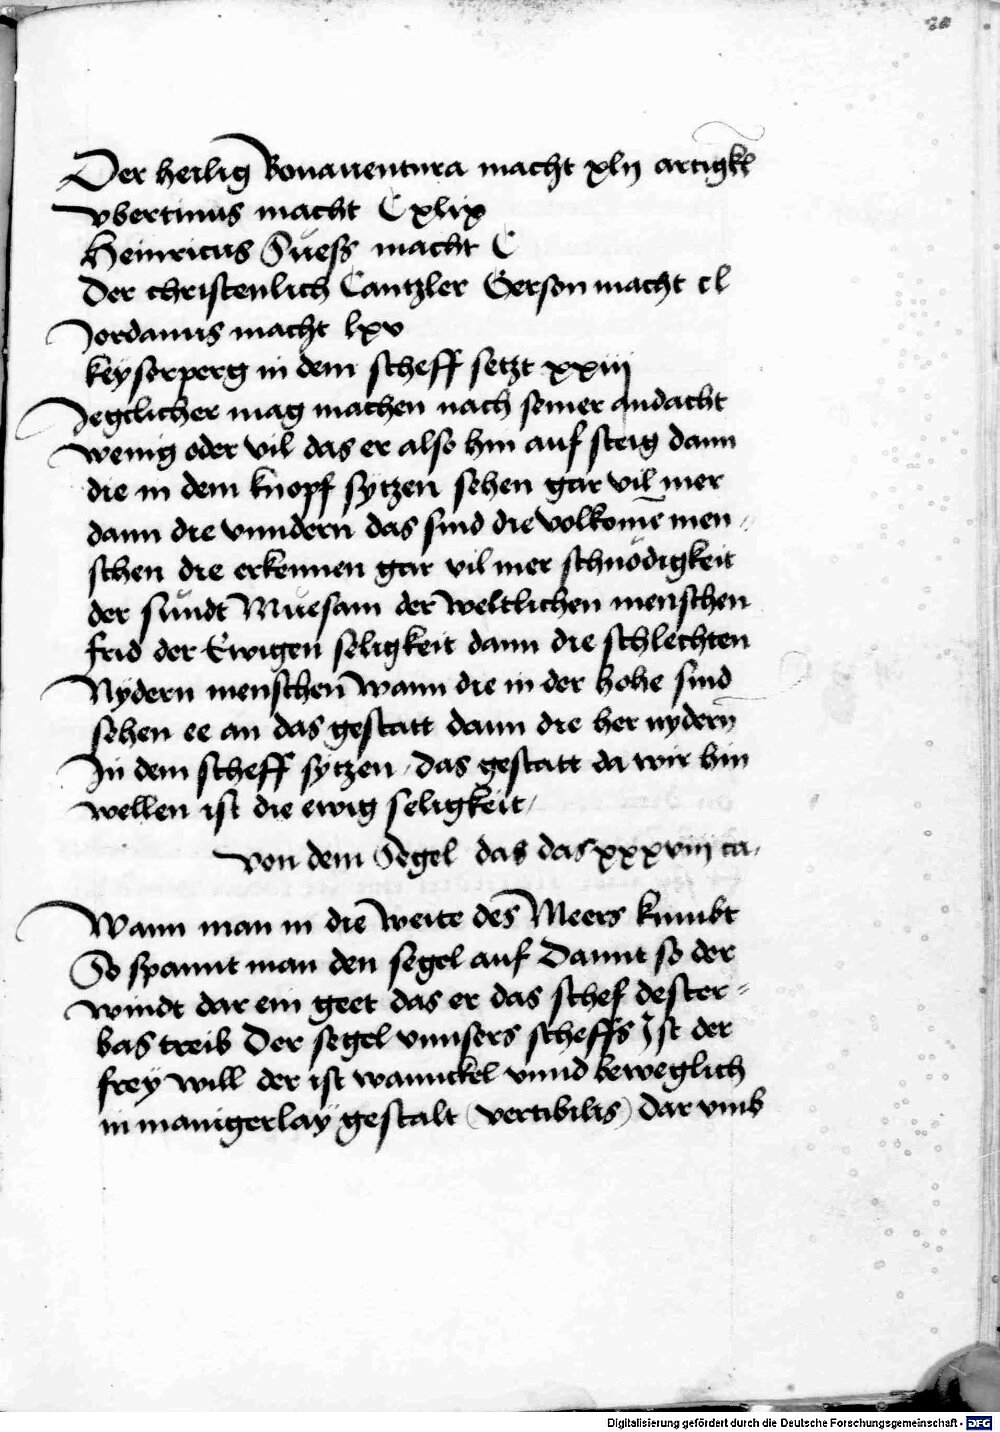 Der heilig Bonauentura macht xlij artigkl
vbertinus macht C xlix
Heinricus Suess macht C
Der christenlich Cantzler Gerson macht cl
Jordanus macht lxv
keyserperg in dem scheff setzt xxiij
Jegclicher mag machen nach seiner andacht
wenig oder vil das er also hin auf steig dann
die in dem knopf sytzen sehen gar vil mer
dann die vnndern das sind die volkome͂ men-
schen die erkennen gar vil mer schnödigkeit
der sundt Muesam der weltlichen menschen
frid der Ewigen seligkeit dann die schlechten
Nydern menschen Wann die in der hohe sind
sehen ee an das gestatt dann die her nydern
In dem scheff sytzen / das gestatt da wir hin
wellen ist die ewig seligkeit /
von dem Segel das das xxxviij ca.
Wann man in die Weite des Meers kumbt
So spannt man den segel auf Damit so der
windt dar ein geet das er das schef dester-
bas treib Der segel vnnsers scheffs Ist der
frey will der ist wannckel vnnd beweglich
in manigerlay gestalt (vertibilis) dar vmb
Digitalisierung gefördert durch die Deutsche Forschungsgemeinschaft - DFG